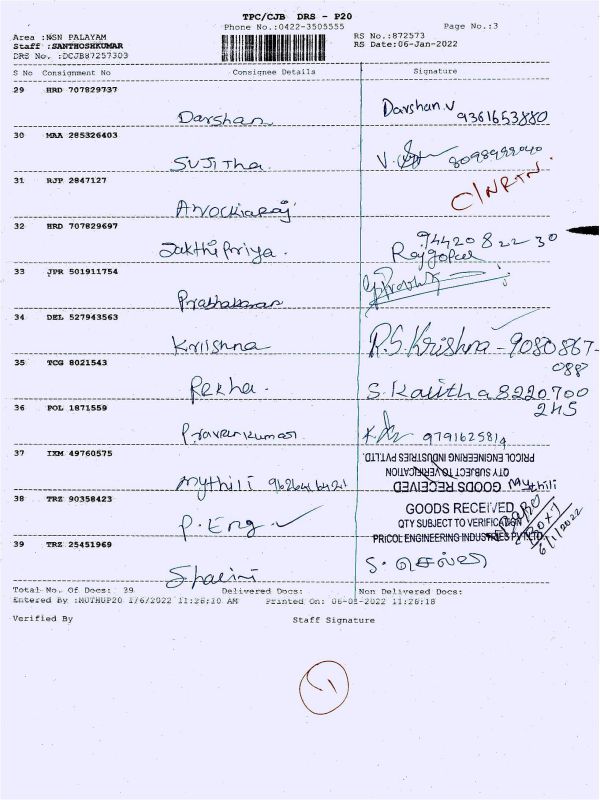 TPC/CJB DRS - P20
Phone No.:0422-3505555
Page No.:3
Area :NSN PALAYAM
RS No.:872573
Staff :SANTHOSHKUMAR
RS Date:06-Jan-2022
DRS No. :DCJB87257303
S No Consignment No Consignee Details Signature
29 HRD 707829737
Darshan Darshan.V
9361653880
30 MAA 285326403
Sujitha. V.
31 RJP 2847127
C/NRTN.
Arockiaraj
32 HRD 707829697
94420 822 30
Sakthi Priya. Rajgopal
33 JPR 501911754
Prabhakaran
34 DEL 527943563
Kriishna R.S. Krishna - 9080867-
088
35 TCG 8021543
Rekha. S. Kavitha 8220700
245
36 POL 1871559
Praveenkumar K. 9791625814
37 IXM 49760575
PRICOL ENGINEERING INDUSTRIES PVT LTD.
QTY SUBJECT TO VERIFICATION
GOODS RECEIVED
Mythili 9626416421 Mythili
38 TRZ 90358423
GOODS RECEIVED
P. Eng QTY SUBJECT TO VERIFICATION
PRICOL ENGINEERING INDUSTRIES PVT LTD.
6/1/2022
39 TRZ 25451969
Shalini S. செல்வி
Total No. Of Docs: 39 Delivered Docs: Non Delivered Docs:
Entered By :MUTHUP20 1/6/2022 11:26:10 AM Printed On: 06-01-2022 11:26:18
Verified By Staff Signature